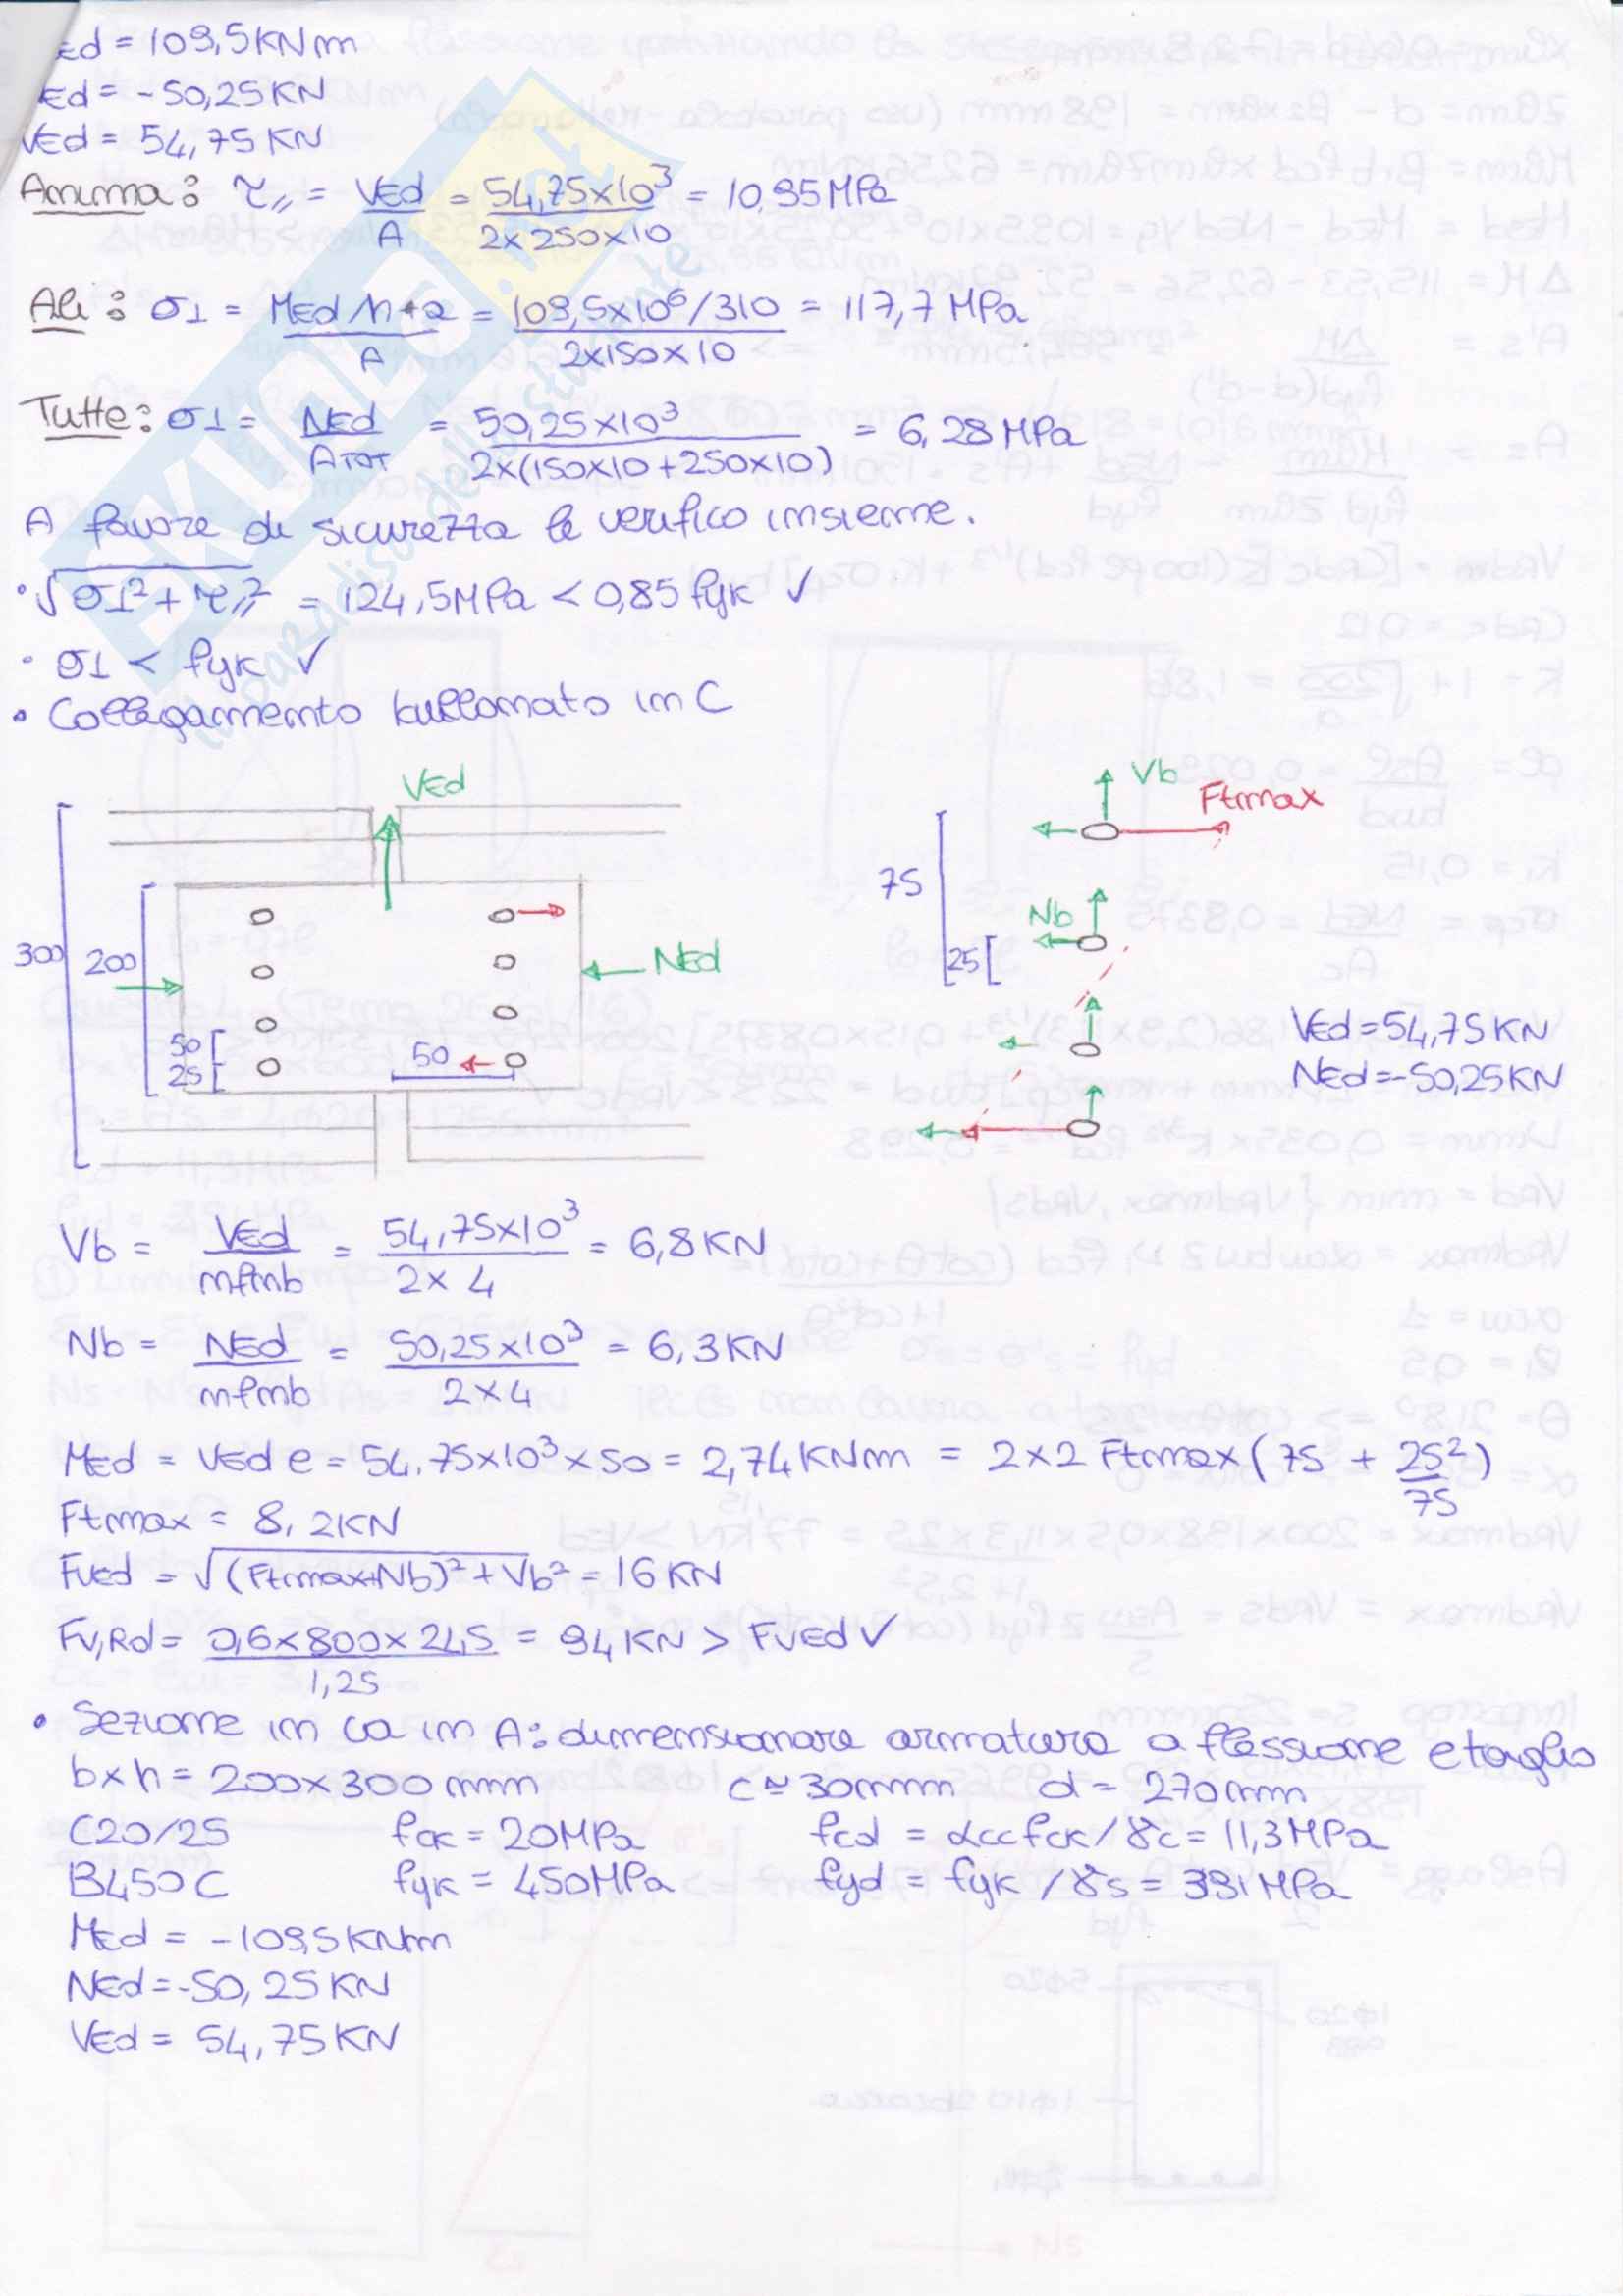 Ed = 109,5 KNm
Ed = - 50,25 KN
VEd = 54,75 KN
Anima: τ// = VEd / A = 54,75x10³ / 2x250x10 = 10,95 MPa
Ali: σ⊥ = MEd/h+a / A = 109,5x10⁶/310 / 2x150x10 = 117,7 MPa
Tutte: σ⊥ = NEd / ATOT = 50,25x10³ / 2x(150x10+250x10) = 6,28 MPa
A favore di sicurezza le verifico insieme.
• √σ⊥²+τ//² = 124,5 MPa < 0,85 fyk ✓
• σ⊥ < fyk ✓
• Collegamento bullonato in C
VEd
Vb
Ftmmax
75
Nb
300
200
NEd
25
50
25
50
VEd = 54,75 KN
NEd = -50,25 KN
Vb = VEd / nfnb = 54,75x10³ / 2x4 = 6,8 KN
Nb = NEd / nfnb = 50,25x10³ / 2x4 = 6,3 KN
MEd = VEd e = 54.75x10³x50 = 2,74 KNm = 2x2 Ftmmax (75 + 25²/75)
Ftmmax = 8,2 KN
FvEd = √(Ftmmax+Nb)²+Vb² = 16 KN
Fv,Rd = 0,6x800x245 / 1,25 = 94 KN > FvEd ✓
• Sezione in ca in A: dimensionare armatura a flessione e taglio
bxh = 200x300 mm c ≈ 30mm d = 270mm
C20/25 fck = 20 MPa fcd = αcc fck / γc = 11,3 MPa
B450C fyk = 450 MPa fyd = fyk / γs = 391 MPa
MEd = -109,5 KNm
NEd = -50,25 KN
VEd = 54,75 KN
SKUOLA.net
il paradiso dello studente